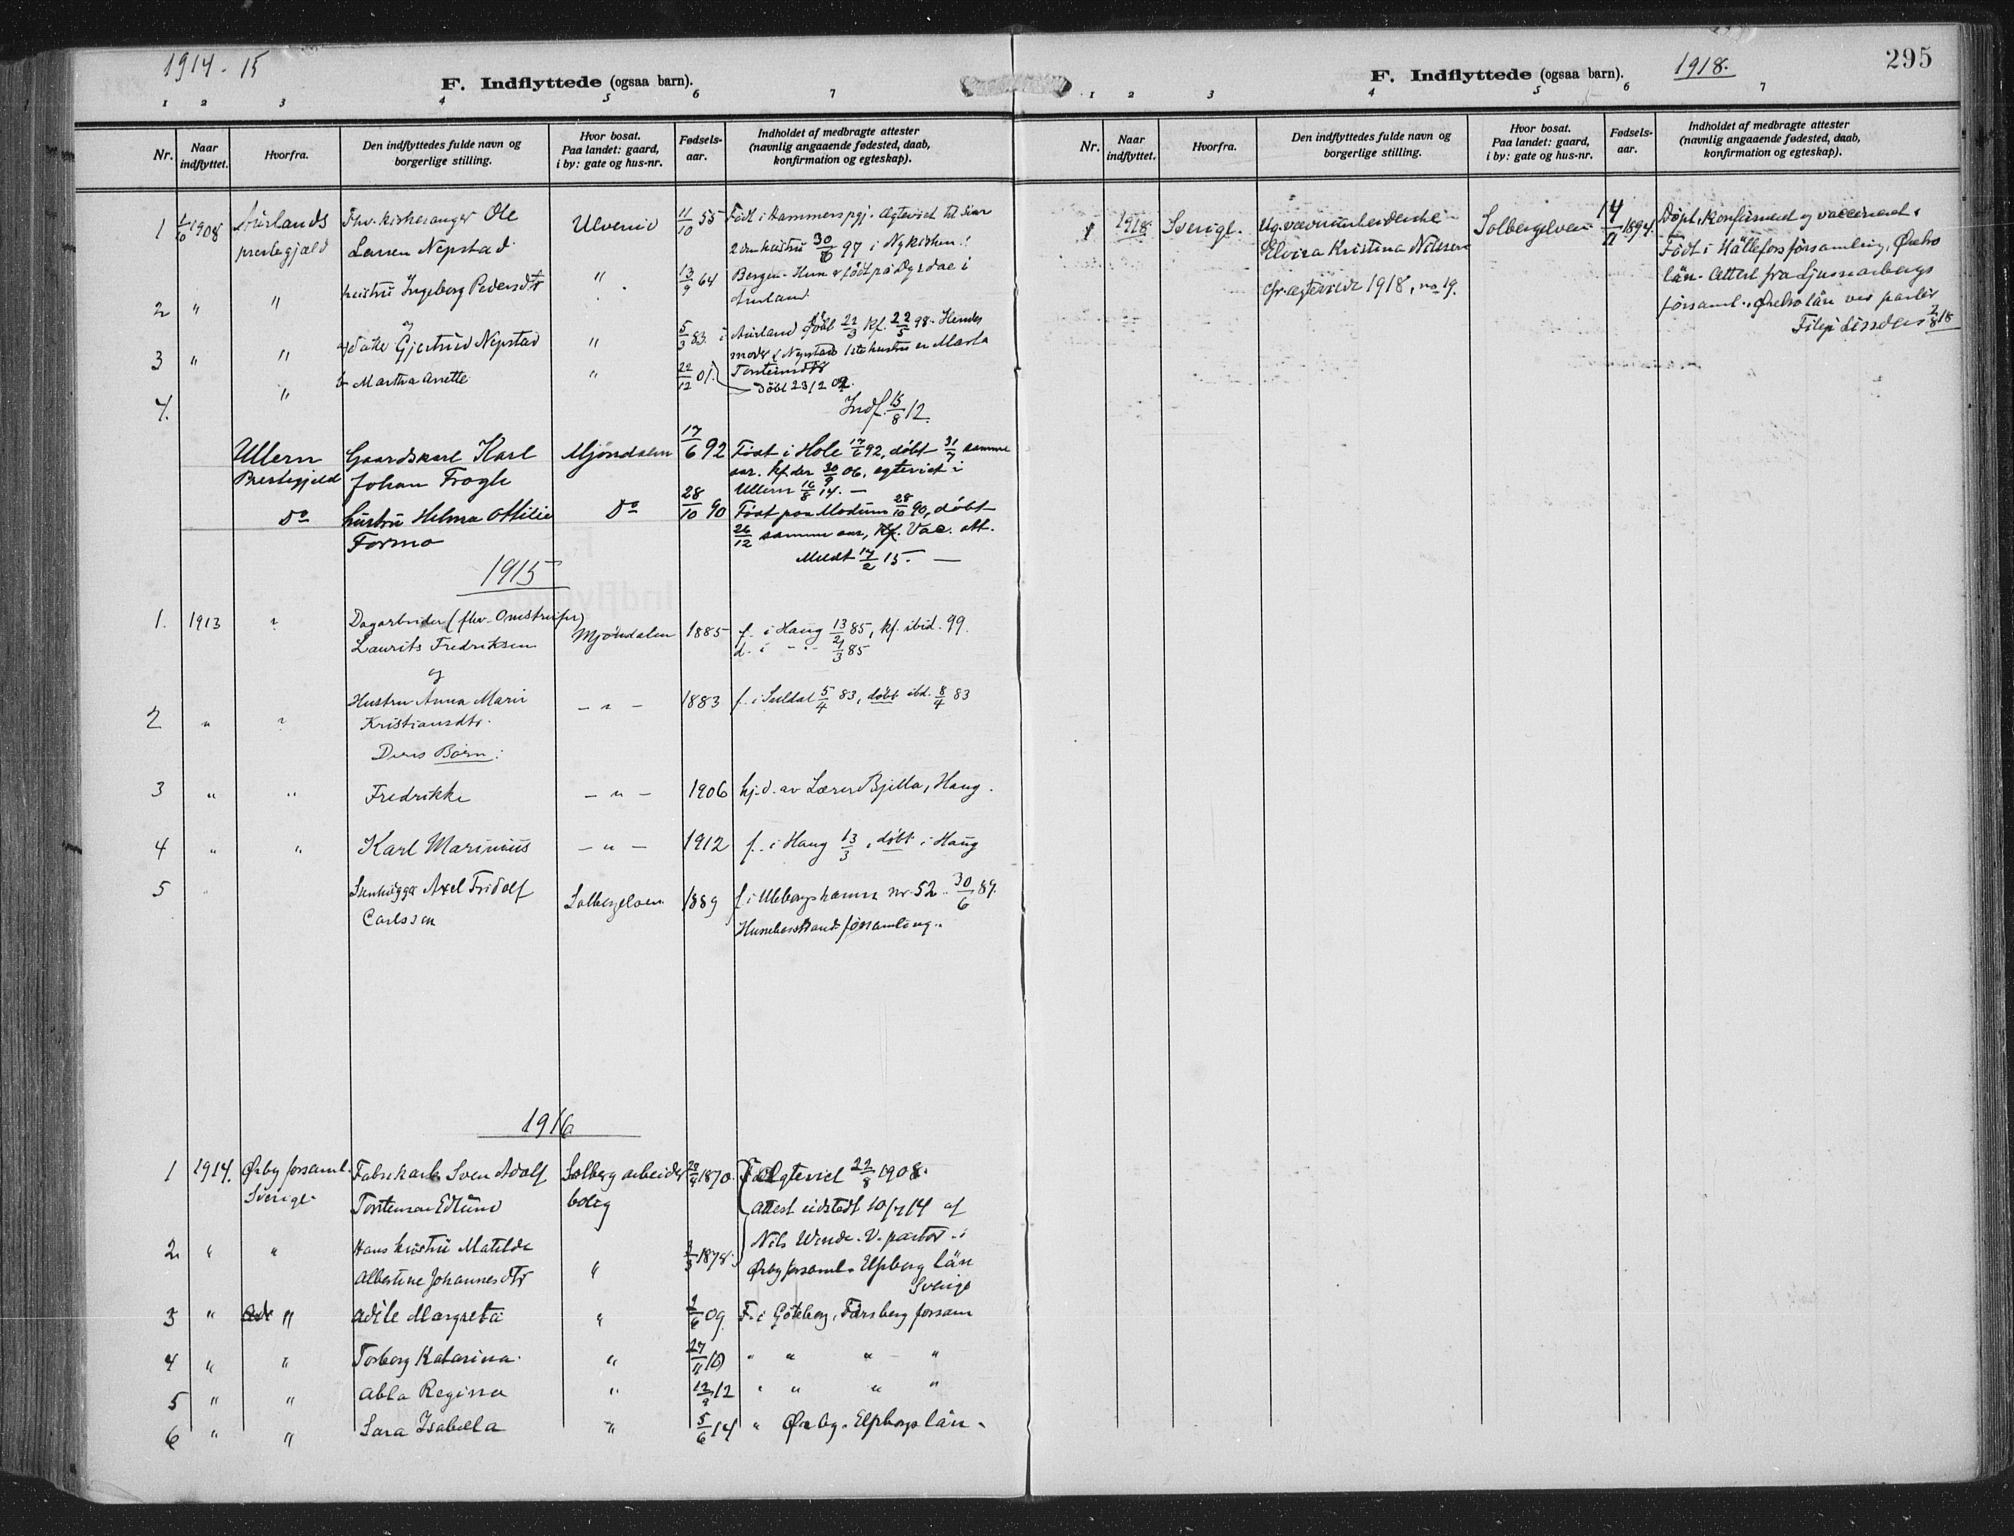 1914-15
F. Indflyttede (ogsaa barn).
1 2 3 4 5 6 7
Nr. Naar indflyttet. Hvorfra. Den indflyttedes fulde navn og borgerlige stilling. Hvor bosat. Paa landet: gaard, i by: gate og hus-nr. Fødsels-aar. Indholdet af medbragte attester (navnlig angaaende fødested, daab, konfirmation og egteskap).
1 1/10 1908 Aurlands Fhv. kirkesanger Ole Ulverud 11/10 55 Født i Hammers pgj. Ægteviet til sin
prestegjæld Larsen Nepstad 2den hustru 30/6 97 i Nykirken i
hustru Ingeborg Pedersdtr " 13/9 64 Bergen. Hun er født på i
2 " " Aurland
og
Gjertrud Nepstad " 5/3 83 i Aurland døbt 22/3 Kf. 22/5 98. Hendes
3 " " moder Nepstads 1ste hustru er Marta
b Martha Anette " 22/12 01. Torsteinsdtr
4. " døbt 23/2 02.
Indf. 15/8 12.
Ullern Gaardskarl Karl Mjöndalen 17/6 92 Født i Hole 17/6 92, døbt 31/7 samme
Prestegjeld Johan Frogh aar. Kf. der 30/9 06, egteviet i
Ullern 16/8 14. —
Do hustru Helma Ottilie Do 28/10 90 Født paa Modum 28/10 90, døbt
Formo 26/12 samme aar, Kf. Vac. att.
Meldt 17/2 15. —
1915
1. 1913 " Dagarbeider (fhv. )
Laurits Fredriksen Mjöndalen 1885 f. i Haug 13/2 85, kf. ibid. 99.
d. i " " 1/3 85
og
Hustru Anna Marie — " — 1883 f. i Suldal 5/4 83, døbt ibd. 8/4 83
2 " " Kristiansdtr.
Deres Børn:
3 " " Fredrikke — " — 1906 hj.d. av Lærer Bjella, Haug.
4 " " Karl Marinius — " — 1912 f. i Haug 13/3, døbt i Haug
5 " Stenhugger Axel Fridolf Solbergelven 1889 f. i nr. 52. 30/6 89.
Carlsson Hunebostrand församling.
1916
1 1914. Örby forsaml. Fabrikarb. Sven Adolf Solberg arbeider 1870 Ægteviet 22/8 1908.
Sverige Torstenson Edlund bolig Attest udstedt 10/7 14 af
2 " " Hans hustru Matilde " 1878 Nils V. pastor i
Albertine Johannesdtr Örby forsaml. Elfsborg län
Sverige
3 " " Adile Margreta " 09 F. i Göteborg, forsam
4 " " Torborg Katarina " 27/11 10 " " " "
5 " " Abla Regina " 12 " " " "
6 " " Sara Isabella " 5/6 14 " Örby. Elfsborgs län.
295
1918.
F. Indflyttede (ogsaa barn).
1 2 3 4 5 6 7
Nr. Naar indflyttet. Hvorfra. Den indflyttedes fulde navn og borgerlige stilling. Hvor bosat. Paa landet: gaard, i by: gate og hus-nr. Fødsels-aar. Indholdet af medbragte attester (navnlig angaaende fødested, daab, konfirmation og egteskap).
1 1918 Sverige. Ug. væveriarbeiderske Solbergelven 14/7 1894. Døpt, konfirmert og vaccinert.
Elvira Kristina Nilsson Født i Hällefors församling, Örebro
cfr. ægteviede 1918, no 19. län. Attest fra Ljusnarsbergs
församl. Örebro län ved pastor
Filip 2/8 18